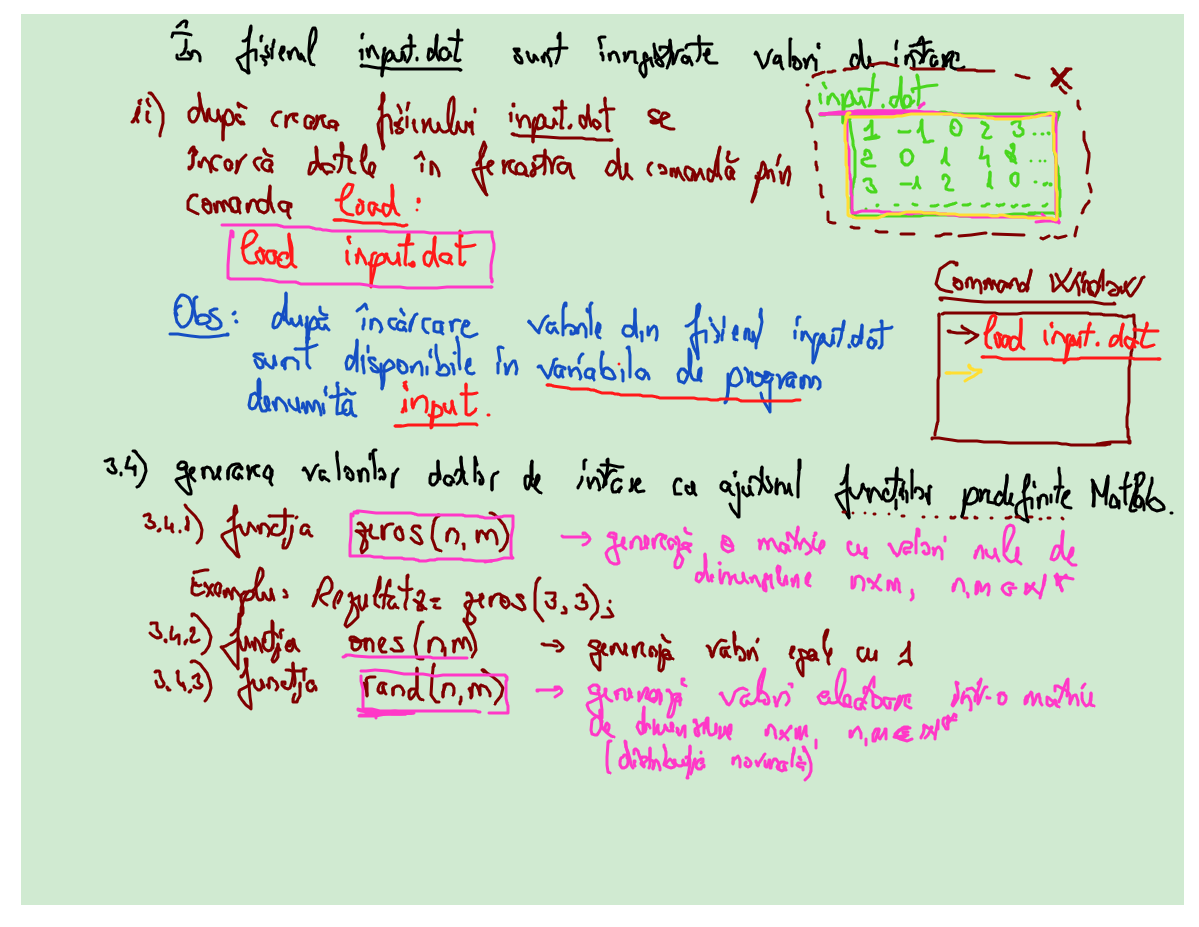 În fișierul input.dat sunt înregistrate valori de intrare
ii) după crearea fișierului input.dat se
încarcă datele în fereastra de comandă prin
comanda load:
load input.dat
input.dat
1 -1 0 2 3 ...
2 0 1 4 ...
3 -1 2 1 0 ...
Command Window
→ load input.dat
→
Obs: după încărcare valorile din fișierul input.dat
sunt disponibile în variabila de program
denumită input.
3.4) generarea valorilor datelor de intrare cu ajutorul funcțiilor predefinite Matlab.
3.4.1) funcția zeros(n,m) → generează o matrice cu valori nule de
dimensiune n×m, n,m ∈ N*
Exemplu: Rezultat = zeros(3,3);
3.4.2) funcția ones(n,m) → generează valori egale cu 1
3.4.3) funcția rand(n,m) → generează valori aleatoare într-o matrice
de dimensiune n×m, n,m ∈ N*
(distribuția normală)